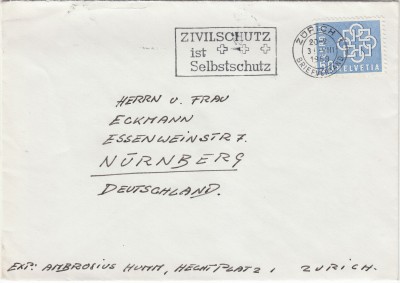 ZIVILSCHUTZ
ist
Selbstschutz
ZÜRICH
HELVETIA
HERRN U. FRAU
ECKMANN
ESSENWEINSTR 7.
NÜRNBERG
DEUTSCHLAND.
EXP: AMBROSIUS HUMM, HECHTPLATZ 1 ZURICH.